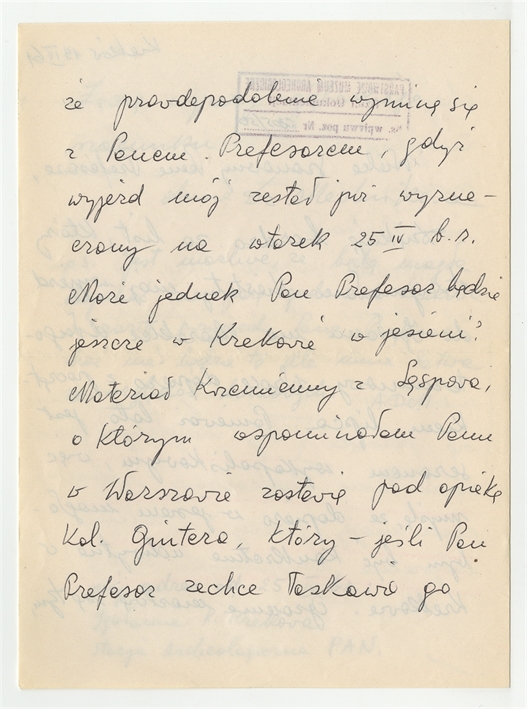 że prawdepodobnie wyminę się
z Panem Profesorem, gdyż
wyjazd mój został już wyzna-
czony na wtorek 25 IV b.r.
Może jednak Pan Profesor będzie
jeszcze w Krakowie w jesieni?
Materiał krzemienny z Sąspowa,
o którym wspominałam Panu
w Warszawie zostawię pod opieką
kol. Gintera, który – jeśli Pan
Profesor zechce łaskawie go